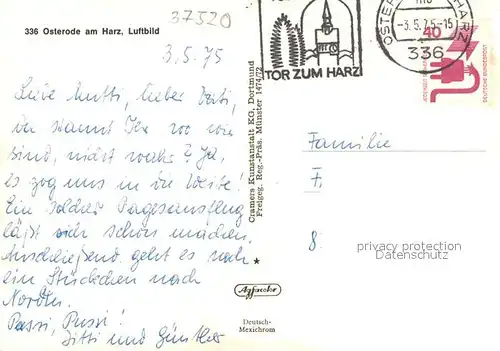 37520
336 Osterode am Harz, Luftbild
3.5.75
Liebe Mutti, lieber Vati,
Da staunt Ihr wo wir
sind, nicht wahr? Ja,
es zog uns in die Weite!
Ein solcher Tagesausflug
läßt sich schön machen.
Anschließend geht es noch
ein Stückchen nach
Norden.
Bussi, Bussi!
und Günther
Cramers Kunstanstalt KG, Dortmund
Freigeg. Reg.-Präs. Münster 1474/72
Agfacolor
Deutsch-
Mexichrom
TOR ZUM HARZ
OSTERODE HARZ
-3.5.75-15
336
40
DEUTSCHE BUNDESPOST
Familie
F.
8.
privacy protection
Datenschutz